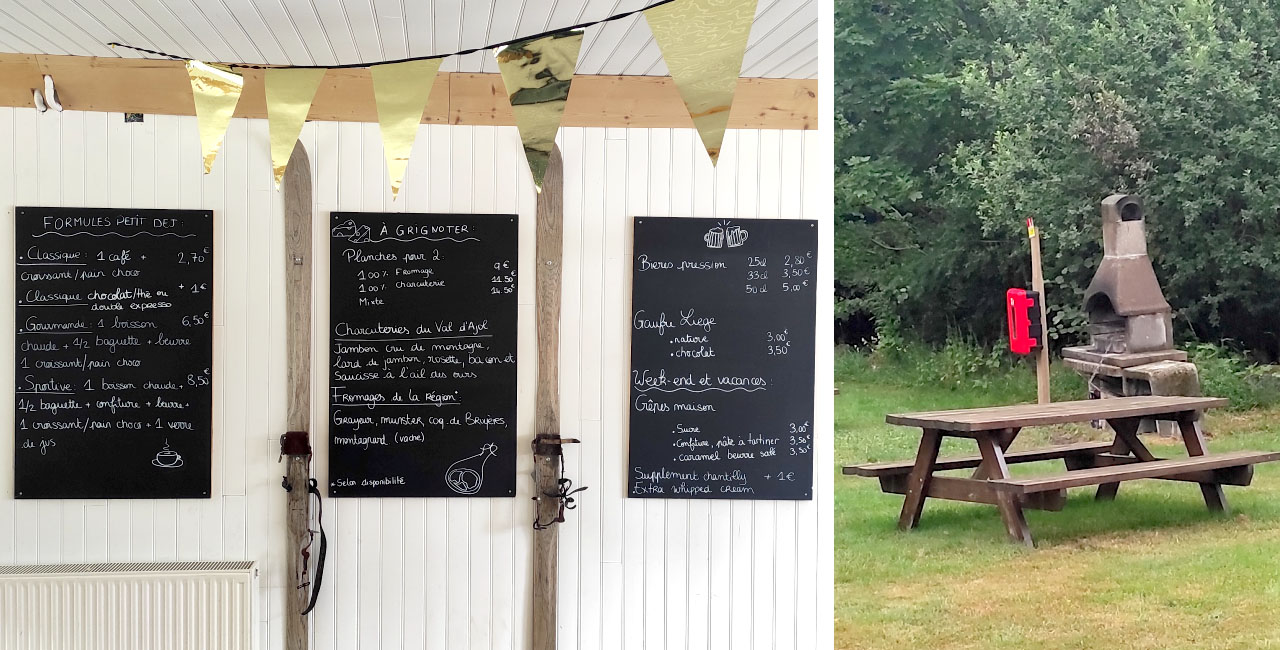 FORMULES PETIT DEJ :
• Classique : 1 café + 2,70€
croissant/pain choco
• Classique chocolat/thé ou + 1€
double expresso
• Gourmande : 1 boisson 6,50€
chaude + 1/2 baguette + beurre
1 croissant/pain choco
• Sportive : 1 boisson chaude + 8,50€
1/2 baguette + confiture + beurre +
1 croissant/pain choco + 1 verre
de jus
À GRIGNOTER :
Planches pour 2 :
100% Fromage 9€
100% Charcuterie 11.50€
Mixte 14.50€
Charcuteries du Val d'Ajol
Jambon cru de montagne,
lard de jambon, rosette, bacon et
Saucisse à l'ail des ours
Fromages de la Région :
Gruyeur, munster, coq. de Bruyères,
montagnard (vache)
* Selon disponibilité
Bières pression 25cl 2,80€
33cl 3,50€
50cl 5,00€
Gaufre Liege
• nature 3,00€
• chocolat 3,50€
Week-end et vacances :
Crêpes maison
• Sucre 3,00€
• Confiture, pâte à tartiner 3,50€
• caramel beurre salé 3,50€
Supplement chantilly + 1€
Extra whipped cream